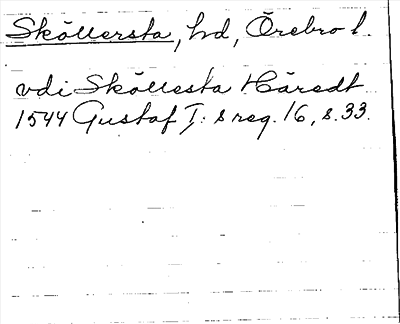 Sköllersta, hd, Örebro l.
vdi Sköllesta Häredt
1544 Gustaf I: s reg. 16, s. 33.